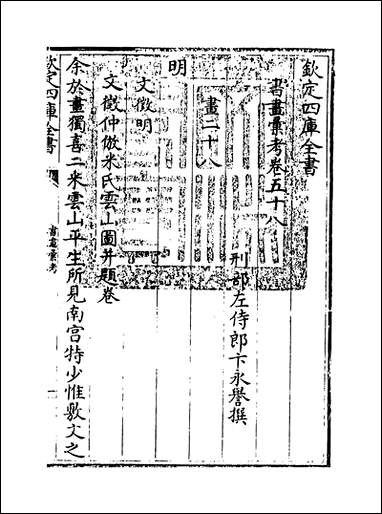 欽定四庫全書
書畫彙考卷五十八
刑部左侍郎卞永譽撰
畫二十八
明
文徵明
文徵仲倣米氏雲山圖并題卷
余於畫獨喜二米雲山平生所見南宫特少惟敷文之
欽定四庫全書
書畫彙考
一